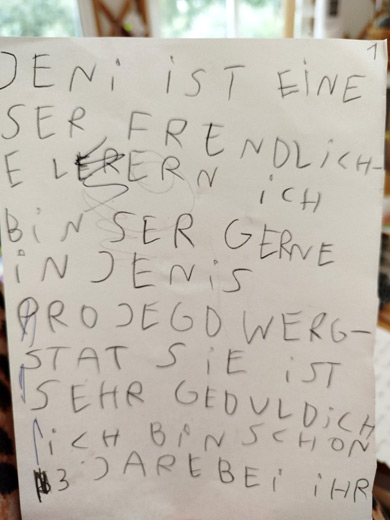 1
JENi iST EiNE
SER FRENDLiCH-
E LERERN iCH
BiN SER GERNE
iN JENiS
PROJEGD WERG-
STAT SiE iST
SEHR GEDULDiCH
iCH BiN SCHON
3 JARE BEi iHR